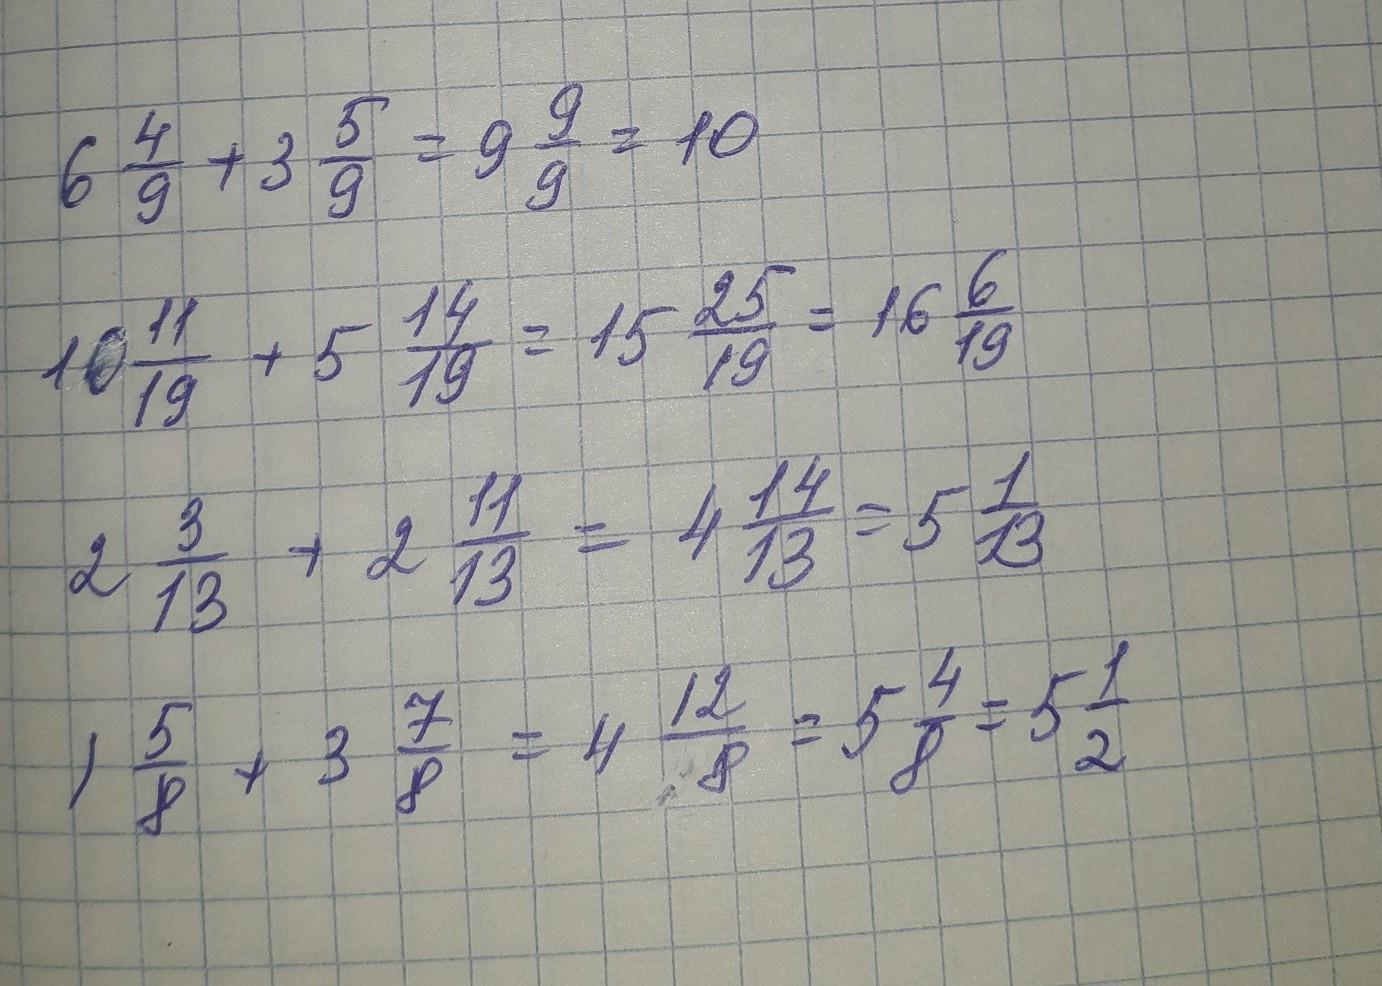 6 4/9 + 3 5/9 = 9 9/9 = 10
10 11/19 + 5 14/19 = 15 25/19 = 16 6/19
2 3/13 + 2 11/13 = 4 14/13 = 5 1/13
1 5/8 + 3 7/8 = 4 12/8 = 5 4/8 = 5 1/2